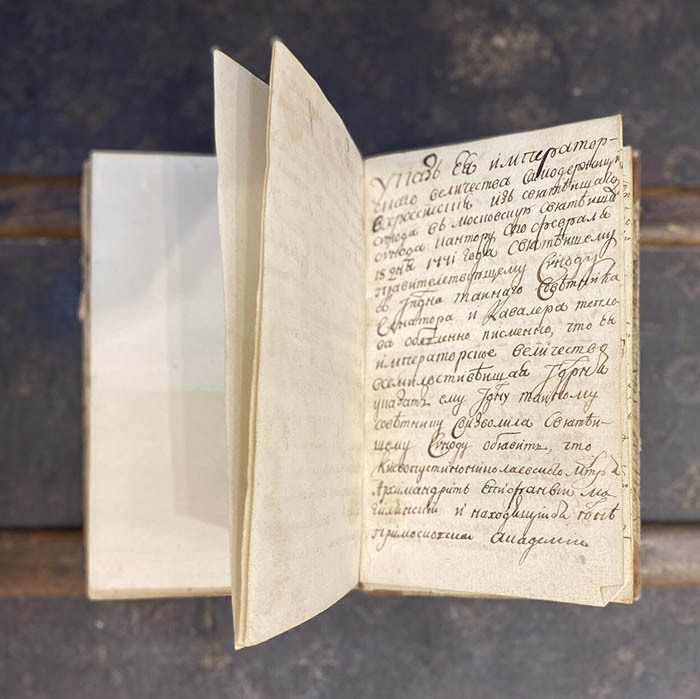 Указъ Ея император-
скаго величества самодержицы
всероссискiя изъ святѣйшаго
сѵнода въ московскую святѣйша
сѵнода кантору сего февраля
18 дня 1741 года святѣйшему
правительствующему Сѵноду
г҃дна таинаго Совѣтника
Сенатора и Кавалера
обявлено писменно, что ея
императорское величество
всемилостивѣйшая Гдрня
указать ему Гдну таиному
совѣтнику Соизволила Святѣй-
шему Сѵноду обявить, что
Киевопустыннониколаевского Мнтря
Архимандритъ
и находящийся
при московской Академии